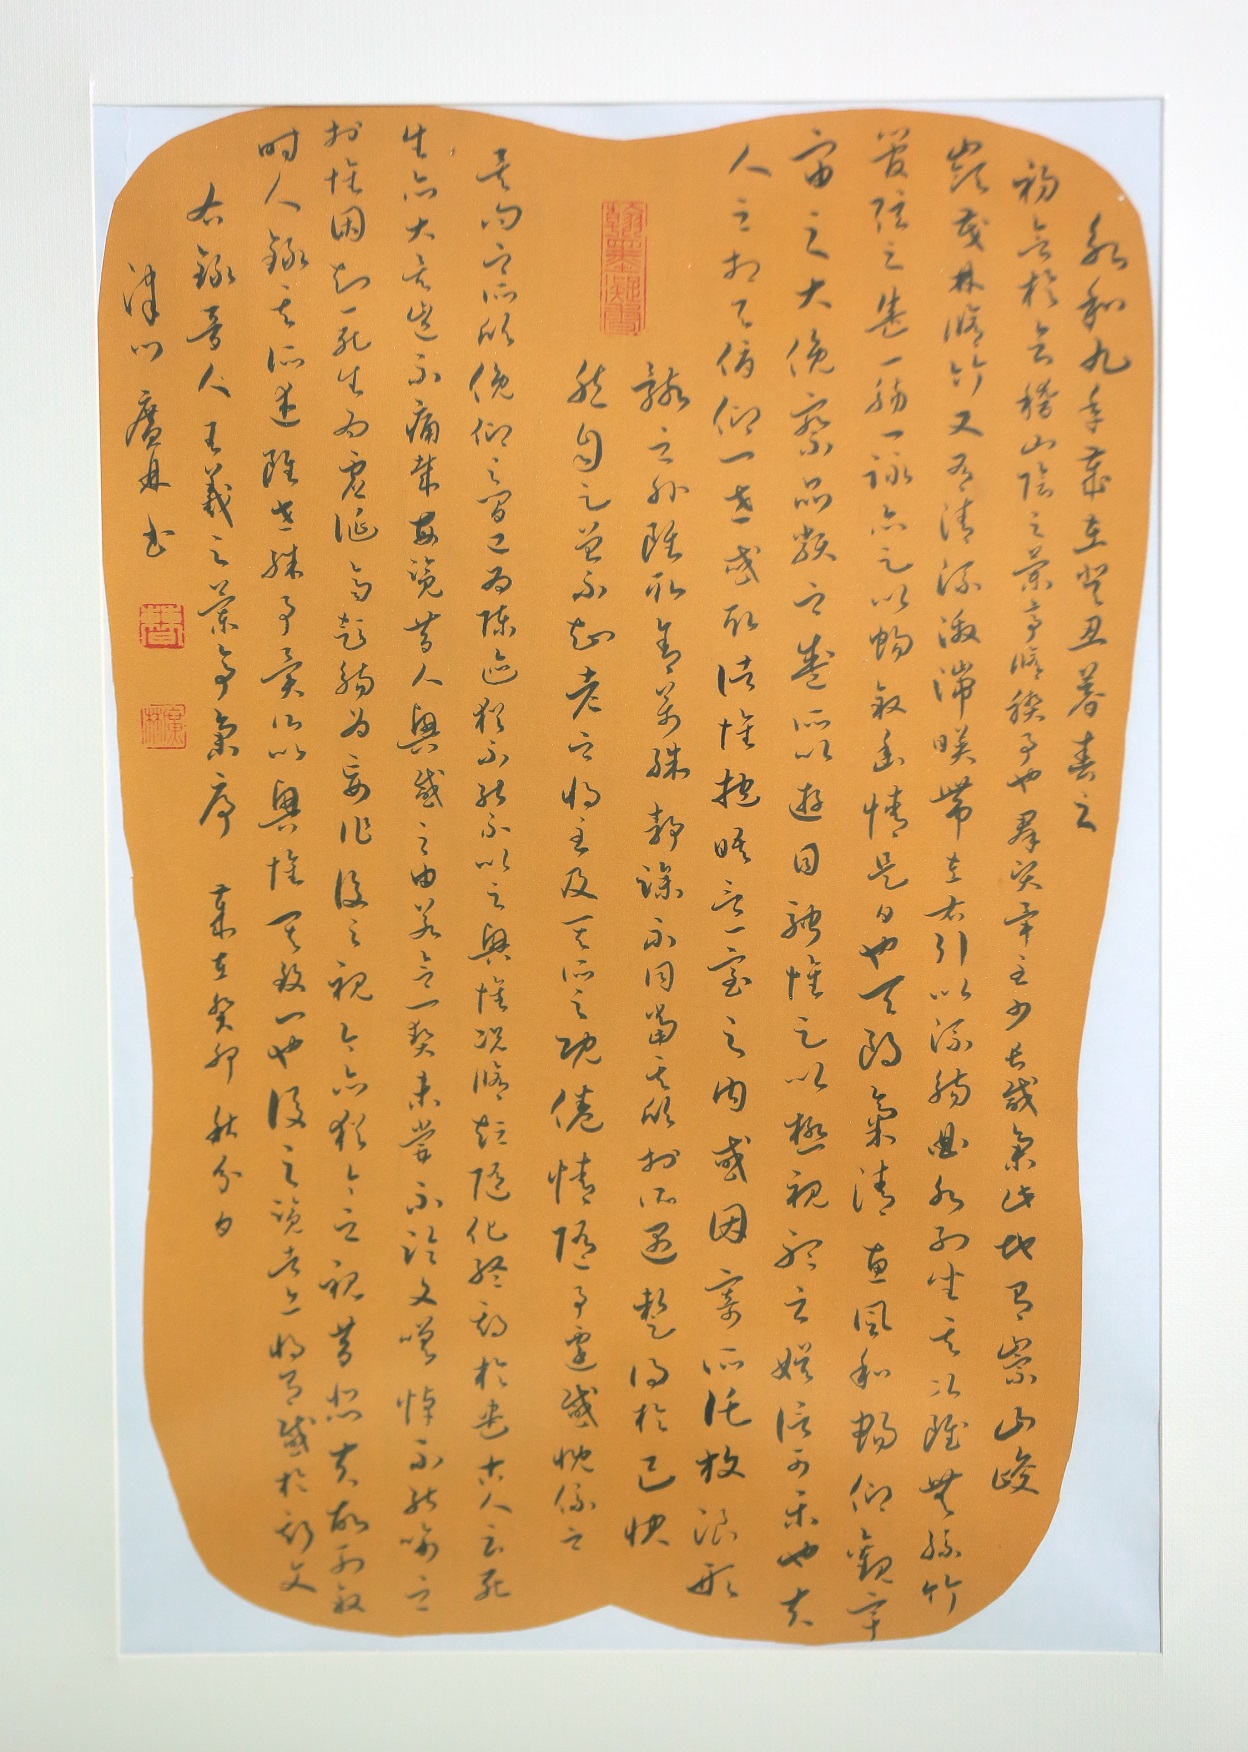 永和九年歲在癸丑暮春之
初會於會稽山陰之蘭亭脩稧事也群賢畢至少長咸集此地有崇山峻
嶺茂林脩竹又有清流激湍暎帶左右引以流觴曲水列坐其次雖無絲竹
管弦之盛一觴一詠亦足以暢敘幽情是日也天朗氣清惠風和暢仰觀宇
宙之大俯察品類之盛所以遊目騁懷足以極視聽之娛信可樂也夫
人之相與俯仰一世或取諸懷抱晤言一室之內或因寄所託放浪形
骸之外雖取舍萬殊靜躁不同當其欣於所遇暫得於己快
然自足曾不知老之將至及其所之既倦情隨事遷感慨係之
矣向之所欣俛仰之間已為陳迹猶不能不以之興懷況脩短隨化終期於盡古人云死
生亦大矣豈不痛哉每覽昔人興感之由若合一契未嘗不臨文嗟悼不能喻之
於懷固知一死生為虛誕齊彭殤為妄作後之視今亦猶今之視昔悲夫故列敘
時人錄其所述雖世殊事異所以興懷其致一也後之覽者亦將有感於斯文
右錄晉人王羲之蘭亭集序 歲在癸卯秋分日
津門廣林書
翰墨凝香